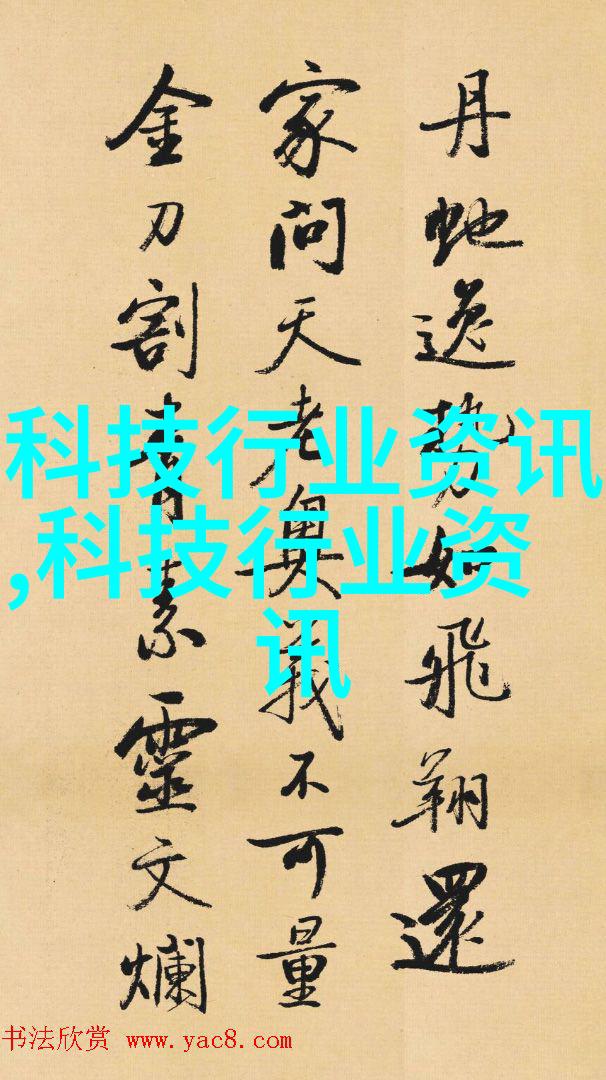 丹虵逸勢如飛翔還
家問天老奧義不可量
金刀割青素靈文爛
科技行业资讯
,科技行业资
讯
书法欣赏 www.yac8.com